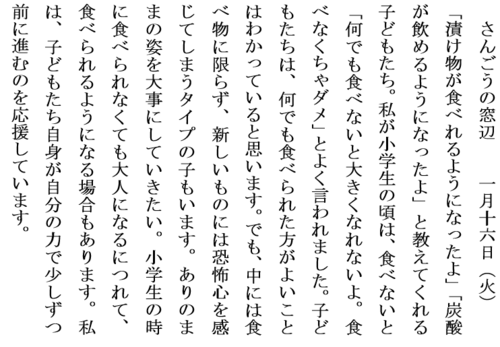 さんごうの窓辺　　一月十六日（火）
「漬け物が食べれるようになったよ」「炭酸
が飲めるようになったよ」と教えてくれる
子どもたち。私が小学生の頃は、食べないと
「何でも食べないと大きくなれないよ。食
べなくちゃダメ」とよく言われました。子ど
もたちは、何でも食べられた方がよいこと
はわかっていると思います。でも、中には食
べ物に限らず、新しいものには恐怖心を感
じてしまうタイプの子もいます。ありのま
まの姿を大事にしていきたい。小学生の時
に食べられなくても大人になるにつれて、
食べられるようになる場合もあります。私
は、子どもたち自身が自分の力で少しずつ
前に進むのを応援しています。